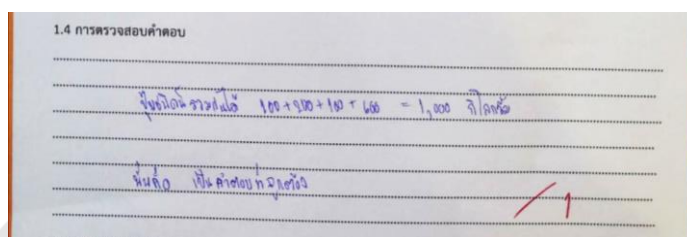 1.4 การตรวจสอบคำตอบ
ปุ๋ยชนิดนี้รวมกันได้ 100+200+100+600 = 1,000 กิโลกรัม
นั่นคือ เป็นคำตอบที่ถูกต้อง
/1